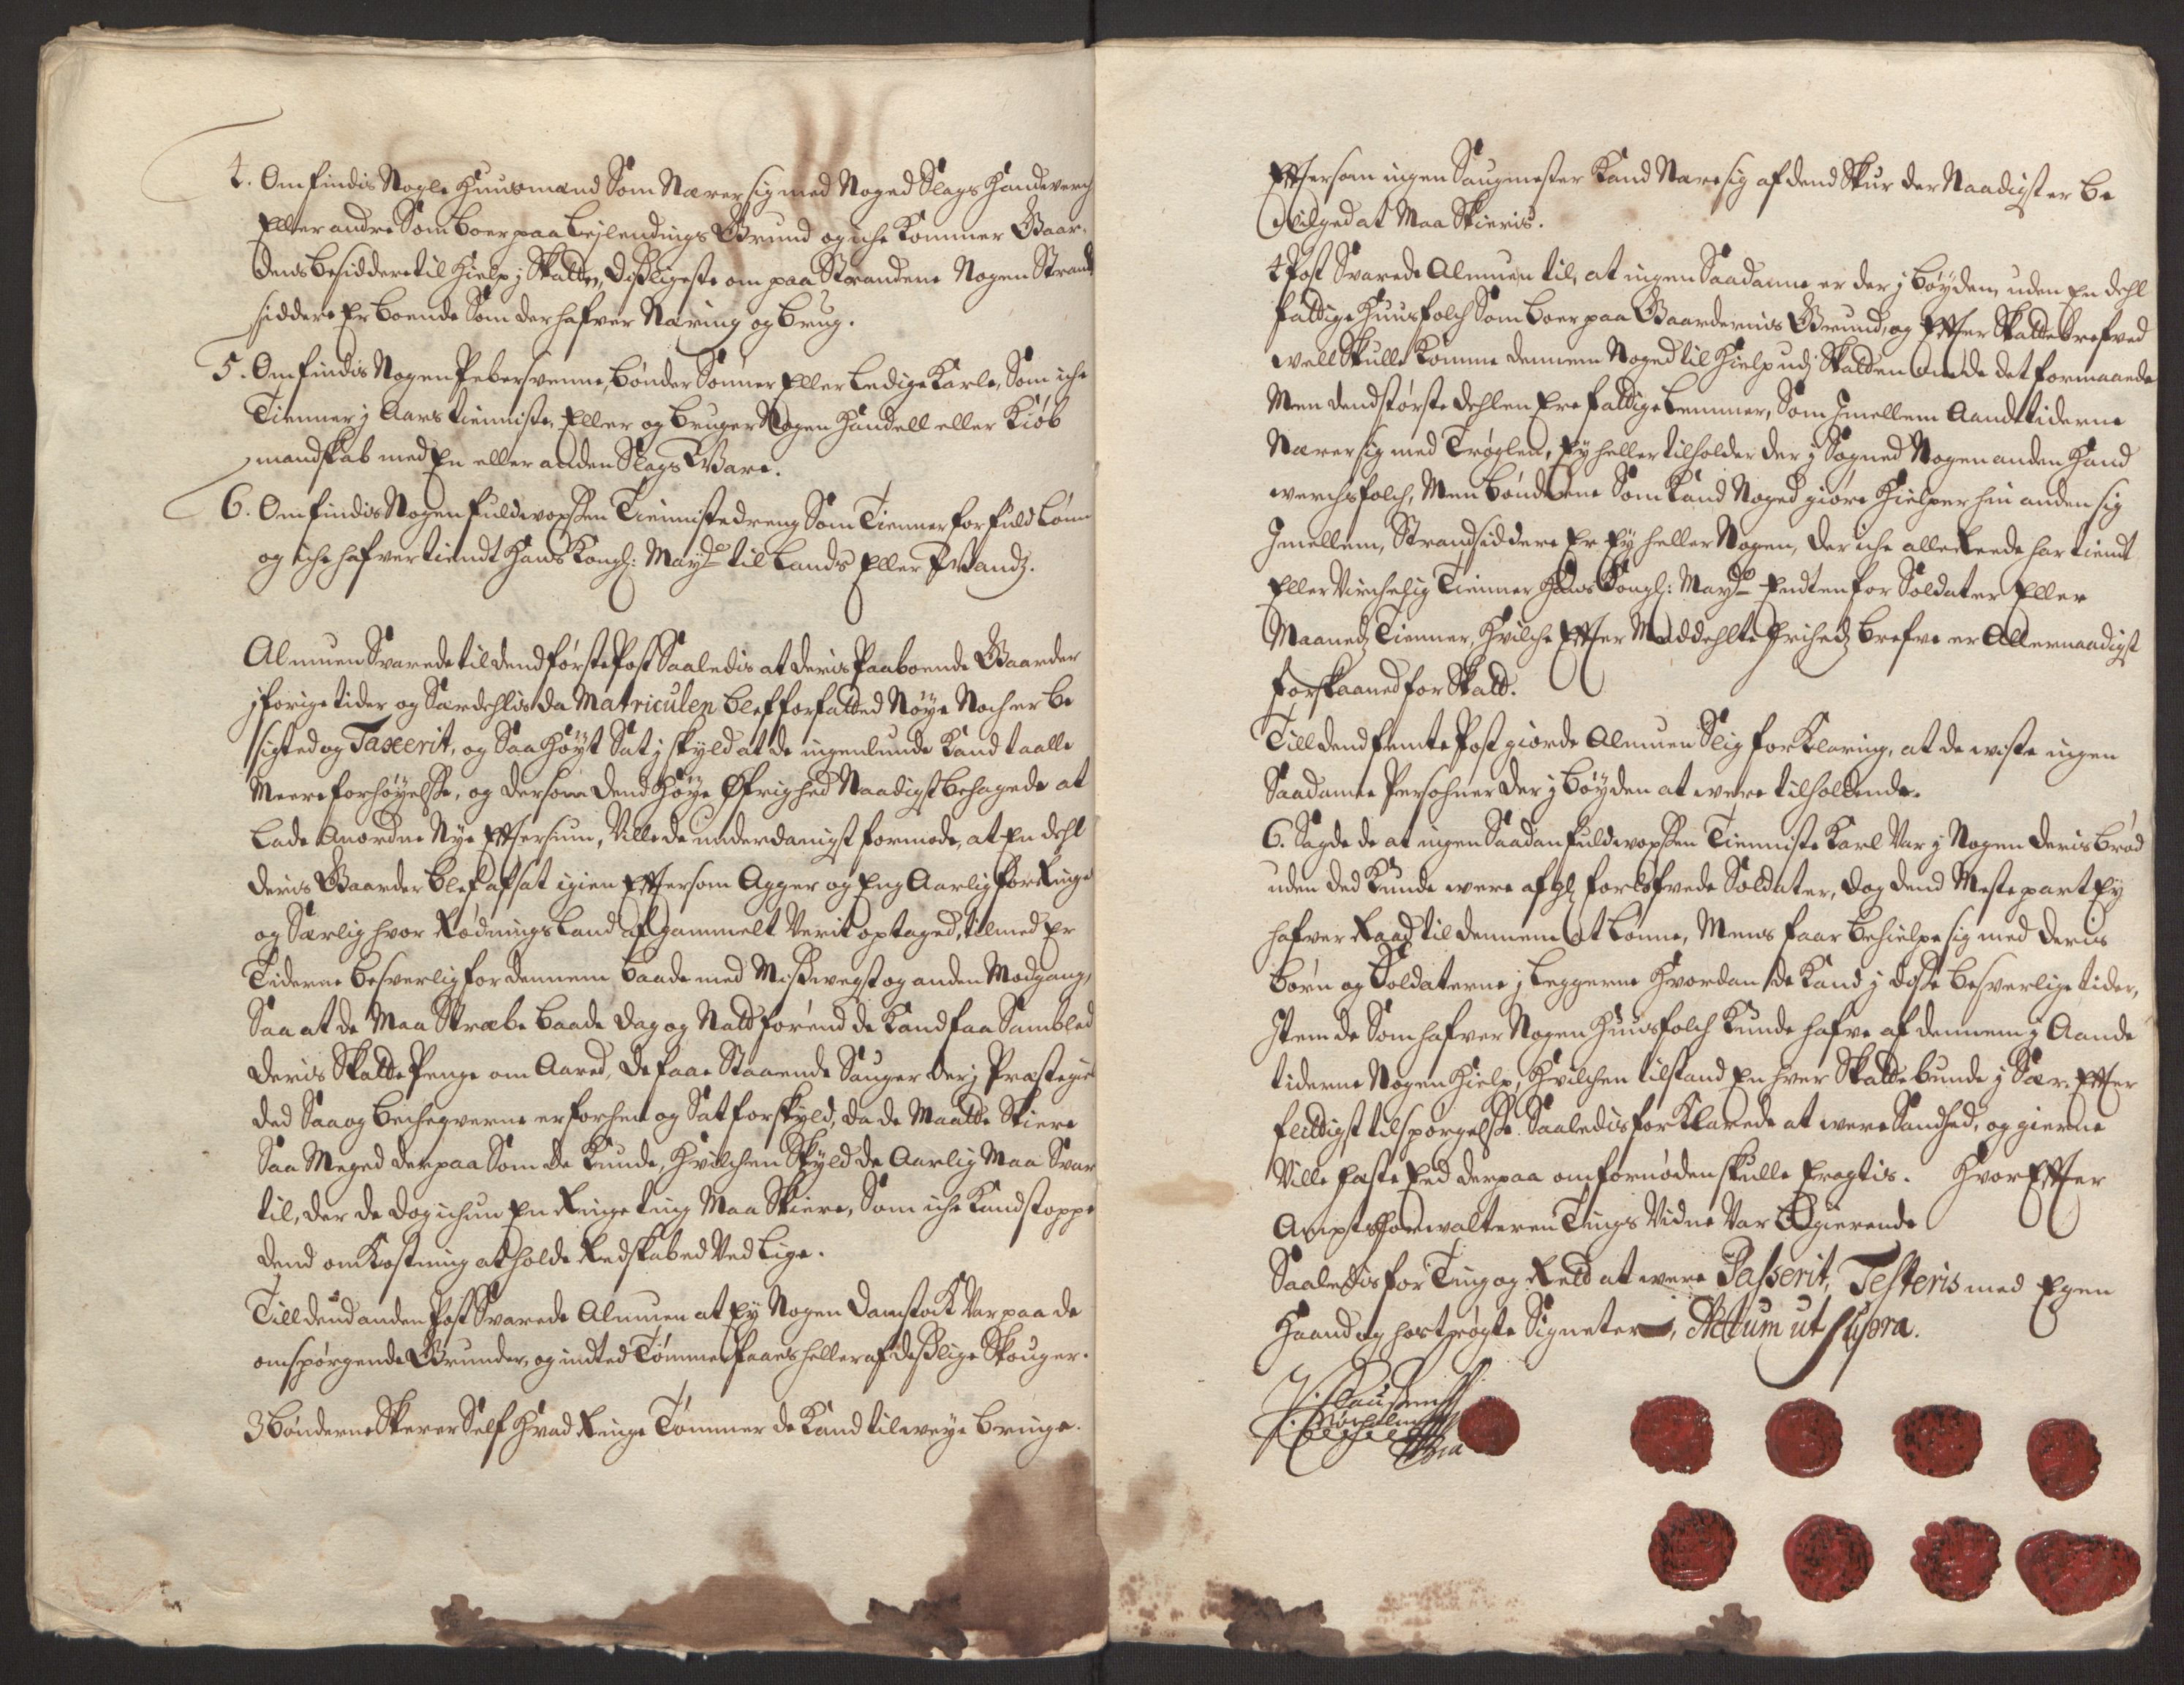 4. Om findis Nogle Huusmænd Som Nærer sig med Noged Slags Handtverch
Eller andre Som boer paa Lejlendings Grund og iche Kommer Gaar-
dens besiddere til Hielp j Skatten, Dißligeste om paa Strandene Nogen Strand
siddere Er boende Som der hafver Næring og brug.
5. Om findis Nogen Pebersvenne, bønder Sønner Eller Ledige Karle, Som iche
Tienner j Aars tienniste, Eller og bruger Nogen Handell eller Kiøb
mandskab med En eller anden Slags Ware.
6. Om findis Nogen fuldvoxsßen Tiennistedreng Som Tienner for fuld Lønn
og iche hafver tiendt Hans Kongl: Mayt: til Lands Eller Vandz.
Almuen Svarede til dend første Post Saaledis at deris Paaboende Gaarder
j forige tider og Særdehlis da Matriculen blef forfatted Nøye Noch er be
sigted og Taxerit, og Saa Høyt Sat j skyld at de ingenlunde Kand taalle
Meere forhøyelße, og dersom dend Høye Øfrighed Naadigst behagede at
Lade Anordne Nye Effersiun, Ville de underdanigst formode, at En dehl
deris Gaarder blef afsat igien Effersom Agger og Eng Aarlig forRinges
og Særlig hvor Rødnings Land af gammelt Verit optaged, tilmed Er
Tiderne besverlig for dennem baade med Mißvegst og anden Modgang,
Saa at de Maa Stræbe baade dag og Natt førend de Kand faa Sambled
deris Skatte Penge om Aared, de faae Staaende Sauger der j Præstegiel
ded Saa og bechqverne er forhen og Sat for skyld, da de Maatte Skiere
Saa Meged der paa Som de Kunde, Hvilchen Skyld de Aarlig Maa Svar
til, der de dog ichun En Ringe ting Maa Skiere, Som iche Kand stoppe
dend omKostning at holde Redskabed Ved Lige.
Till dend anden Post Svarede Almuen at Ey Nogen damstock Var paa de
omspørgende Grunder, og indted Tømmer faaes heller af deßlige Skouger.
3 bønderne Skerer Self Hvad Ringe Tømmer de Kand tilveye bringe.
Effersom ingen Saugmester Kand Nære sig af dend Skur der Naadigst er be
vilged at Maa Skieris.
4 Post Svarede Almuen til, at ingen Saadanne er der j bøyden, uden En dehl
fattige Huusfolch Som boer paa Gaardernis Grund, og Effter Skattebrefved
vell Skulle Komme dennem Noged til Hielp udj Skatten om de det formaaede
Men dend største dehlen Ere fattige Lemmer, Som Jmellem Aandtiderne
Nærer sig med Trøglen, Ey heller tilholder der j Sogned Nogen anden Hand
werchsfolch, Men bønderne Som Kand Noged giøre Hielper hin anden sig
Jmellem, Strandsiddere Er Ey heller Nogen, der iche alleReede har tiendt
Eller Virchelig Tienner Hans Kongl: Mayt: Endten for Soldater Eller
Maanedz Tienner, Hvilche Effter Meddehlte frihedz brefve er Allernaadigst
forskaaned for Skatt.
Till dend femte Post giorde Almuen Slig forKlaring, at de viste ingen
Saadanne Persohner der j bøyden at were tilholdende.
6. Sagde de at ingen Saadan fuldvoxßen Tienniste Karl Var j Nogen deris brød
uden ded Kunde were af gl forlofvede Soldater, dog dend Meste part Ey
hafver Raad til dennem at Lønne, Mens faar behielpe sig med deris
børn og Soldaterne j Leggerne Hvordan de Kand j diße besverlige tider,
Item de Som hafver Nogen Huusfolch Kunde hafve af dennem j Aande
tiderne Nogen Hielp, Hvilchen tilstand En hver Skattebunde j Sær. Effter
flittigst tilspørgelße Saaledis forKlarede at were Sandhed, og gierne
Ville faste Eed derpaa om fornøden skulle Eragtis. Hvor Effter
Amptsforwalteren Tings Vidne Var Begierende
Saaledis for Ting og Rett at were Passerit, Testeris med Egen
Haand og hostrøgte Signeter, Actum ut supra.